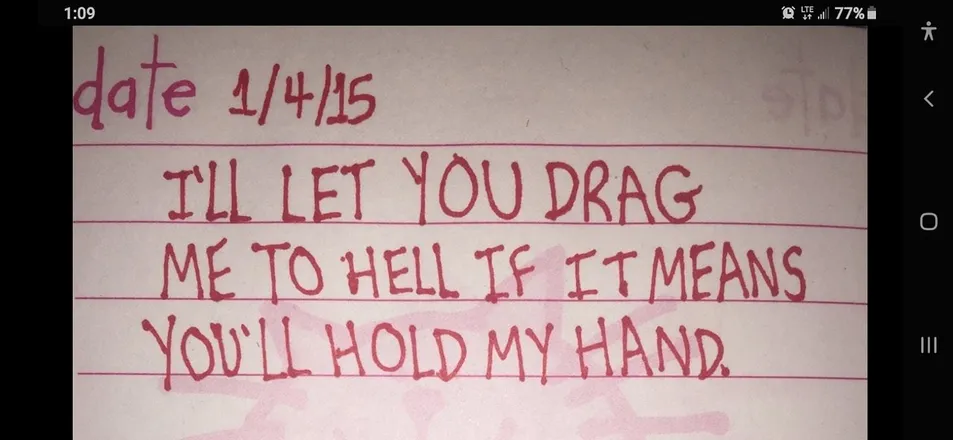 1:09 LTE 77%
date 1/4/15
I'LL LET YOU DRAG
ME TO HELL IF IT MEANS
YOU'LL HOLD MY HAND.